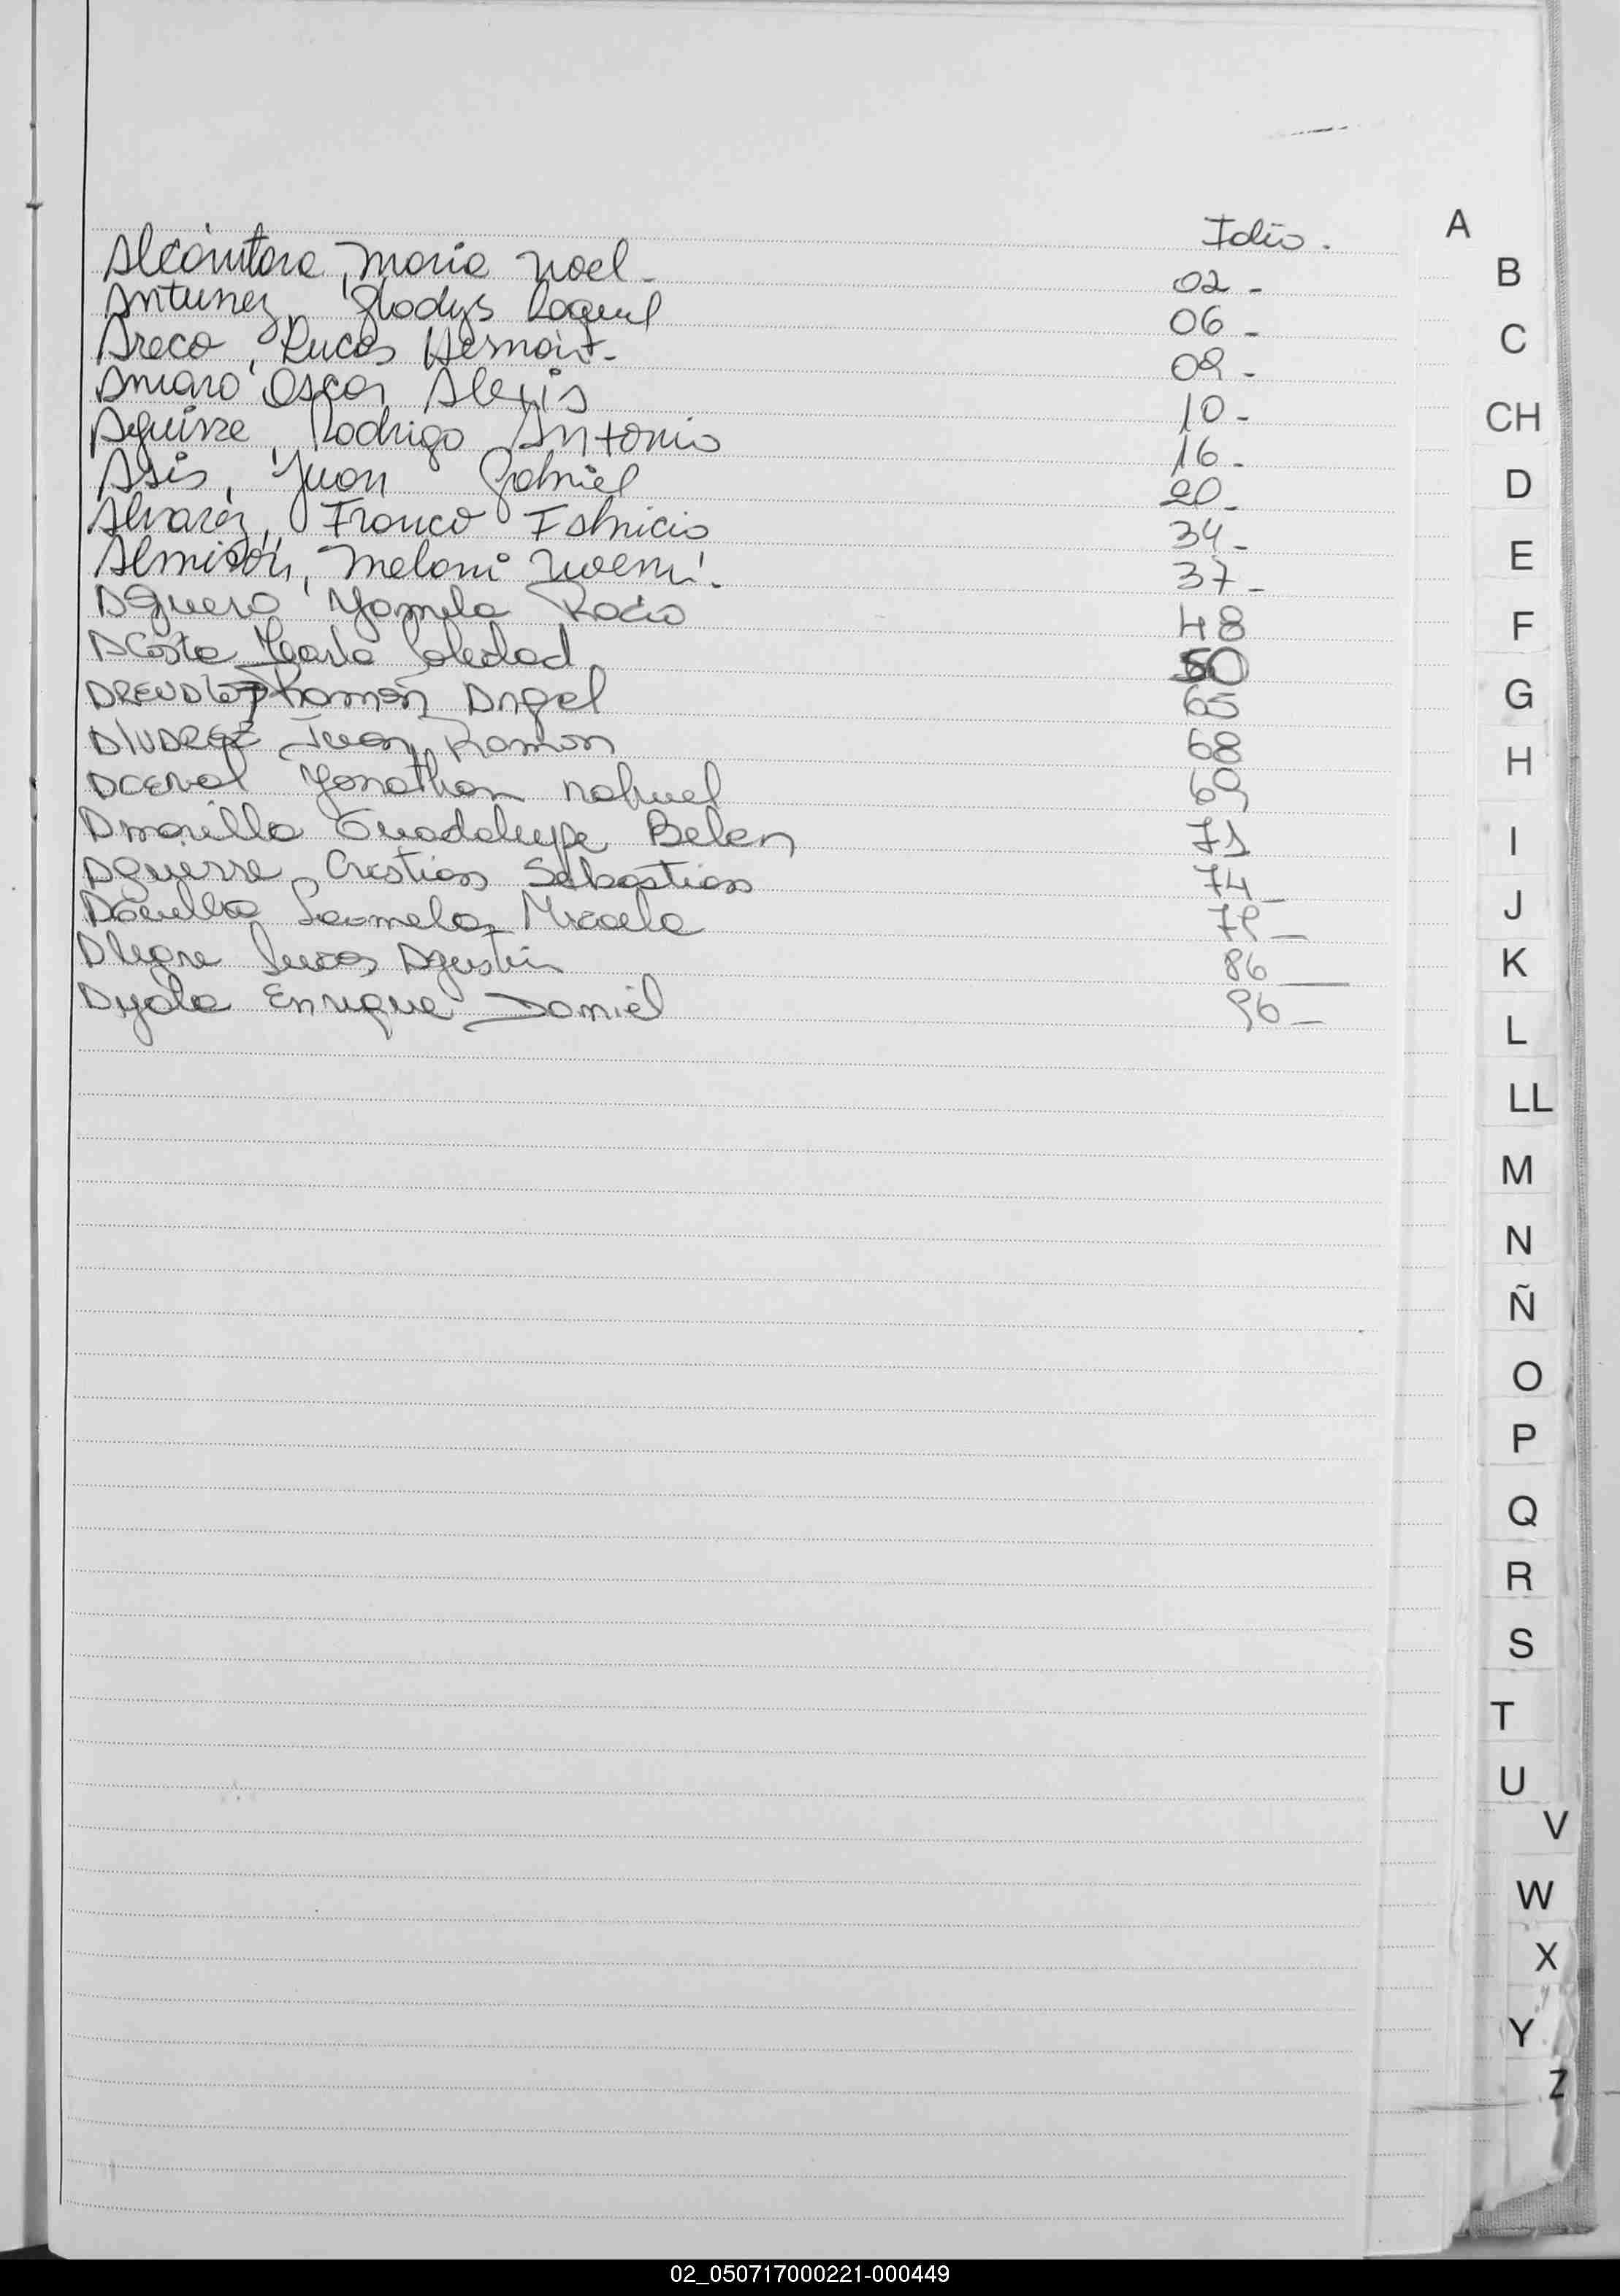 Folio.
Alcántara, Maria Noel - 02 -
Antunez, Gladys Raquel 06 -
Areco, Lucas Hernán - 09 -
Amaro Oscar Alexis 10 -
Aguirre, Rodrigo Antonio 16 -
Asis, Juan Gabriel 20 -
Alvarez, Franco Fabricio 34 -
Almirón, Melani Noemí. 37 -
Aguero Yamila Rocio 48
Acosta Karla Soledad 50
Ramón Angel 65
Juan Ramon 68
Aceval Yonathan Nahuel 69
Amarilla Guadalupe Belen 71
Aguerre Cristian Sebastian 74 _
Micaela _
Alegre Lucas Agustin 86 _
Ayala Enrique Daniel 96 _
A
B
C
CH
D
E
F
G
H
I
J
K
L
LL
M
N
Ñ
O
P
Q
R
S
T
U
V
W
X
Y
Z
02_050717000221-000449